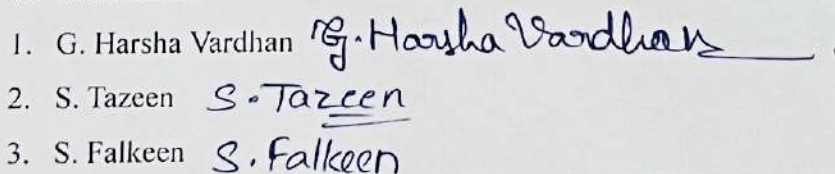 1. G. Harsha Vardhan G. Harsha Vardhan
2. S. Tazeen S. Tazeen
3. S. Falkeen S. Falkeen